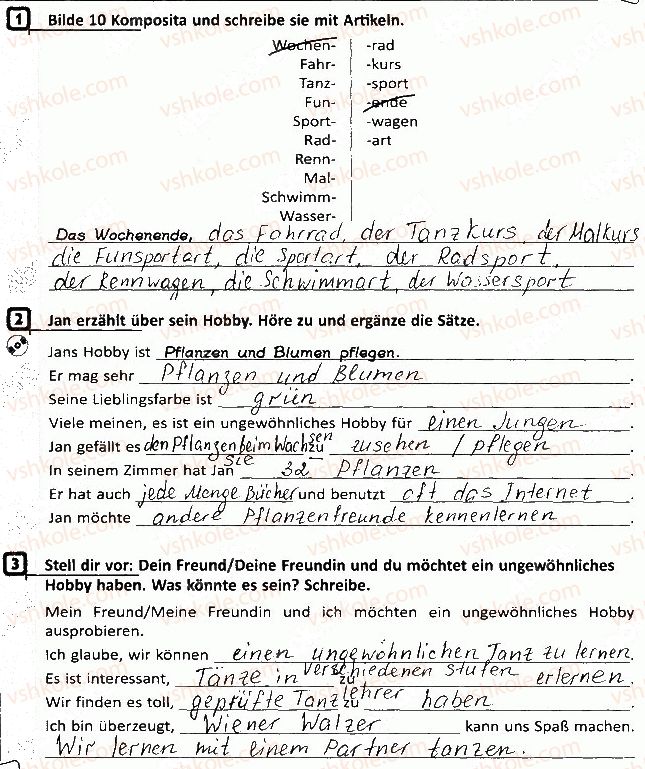 1 Bilde 10 Komposita und schreibe sie mit Artikeln.
Wochen- -rad
Fahr- -kurs
Tanz- -sport
Fun- -ende
Sport- -wagen
Rad- -art
Renn-
Mal-
Schwimm-
Wasser-
Das Wochenende, das Fahrrad, der Tanzkurs, der Malkurs
die Funsportart, die Sportart, der Radsport,
der Rennwagen, die Schwimmart, der Wassersport
2 Jan erzählt über sein Hobby. Höre zu und ergänze die Sätze.
Jans Hobby ist Pflanzen und Blumen pflegen.
Er mag sehr Pflanzen und Blumen.
Seine Lieblingsfarbe ist grün.
Viele meinen, es ist ein ungewöhnliches Hobby für einen Jungen.
Jan gefällt es den Pflanzen beim Wachsen zu zusehen / pflegen.
In seinem Zimmer hat Jan sie 32 Pflanzen.
Er hat auch jede Menge Bücher und benutzt oft das Internet.
Jan möchte andere Pflanzenfreunde kennenlernen.
3 Stell dir vor: Dein Freund/Deine Freundin und du möchtet ein ungewöhnliches
Hobby haben. Was könnte es sein? Schreibe.
Mein Freund/Meine Freundin und ich möchten ein ungewöhnliches Hobby
ausprobieren.
Ich glaube, wir können einen ungewöhnlichen Tanz zu lernen.
Es ist interessant, Tänze in verschiedenen Stufen zu erlernen.
Wir finden es toll, geprüfte Tanzlehrer zu haben.
Ich bin überzeugt, Wiener Walzer kann uns Spaß machen.
Wir lernen mit einem Partner tanzen.
vshkole.com